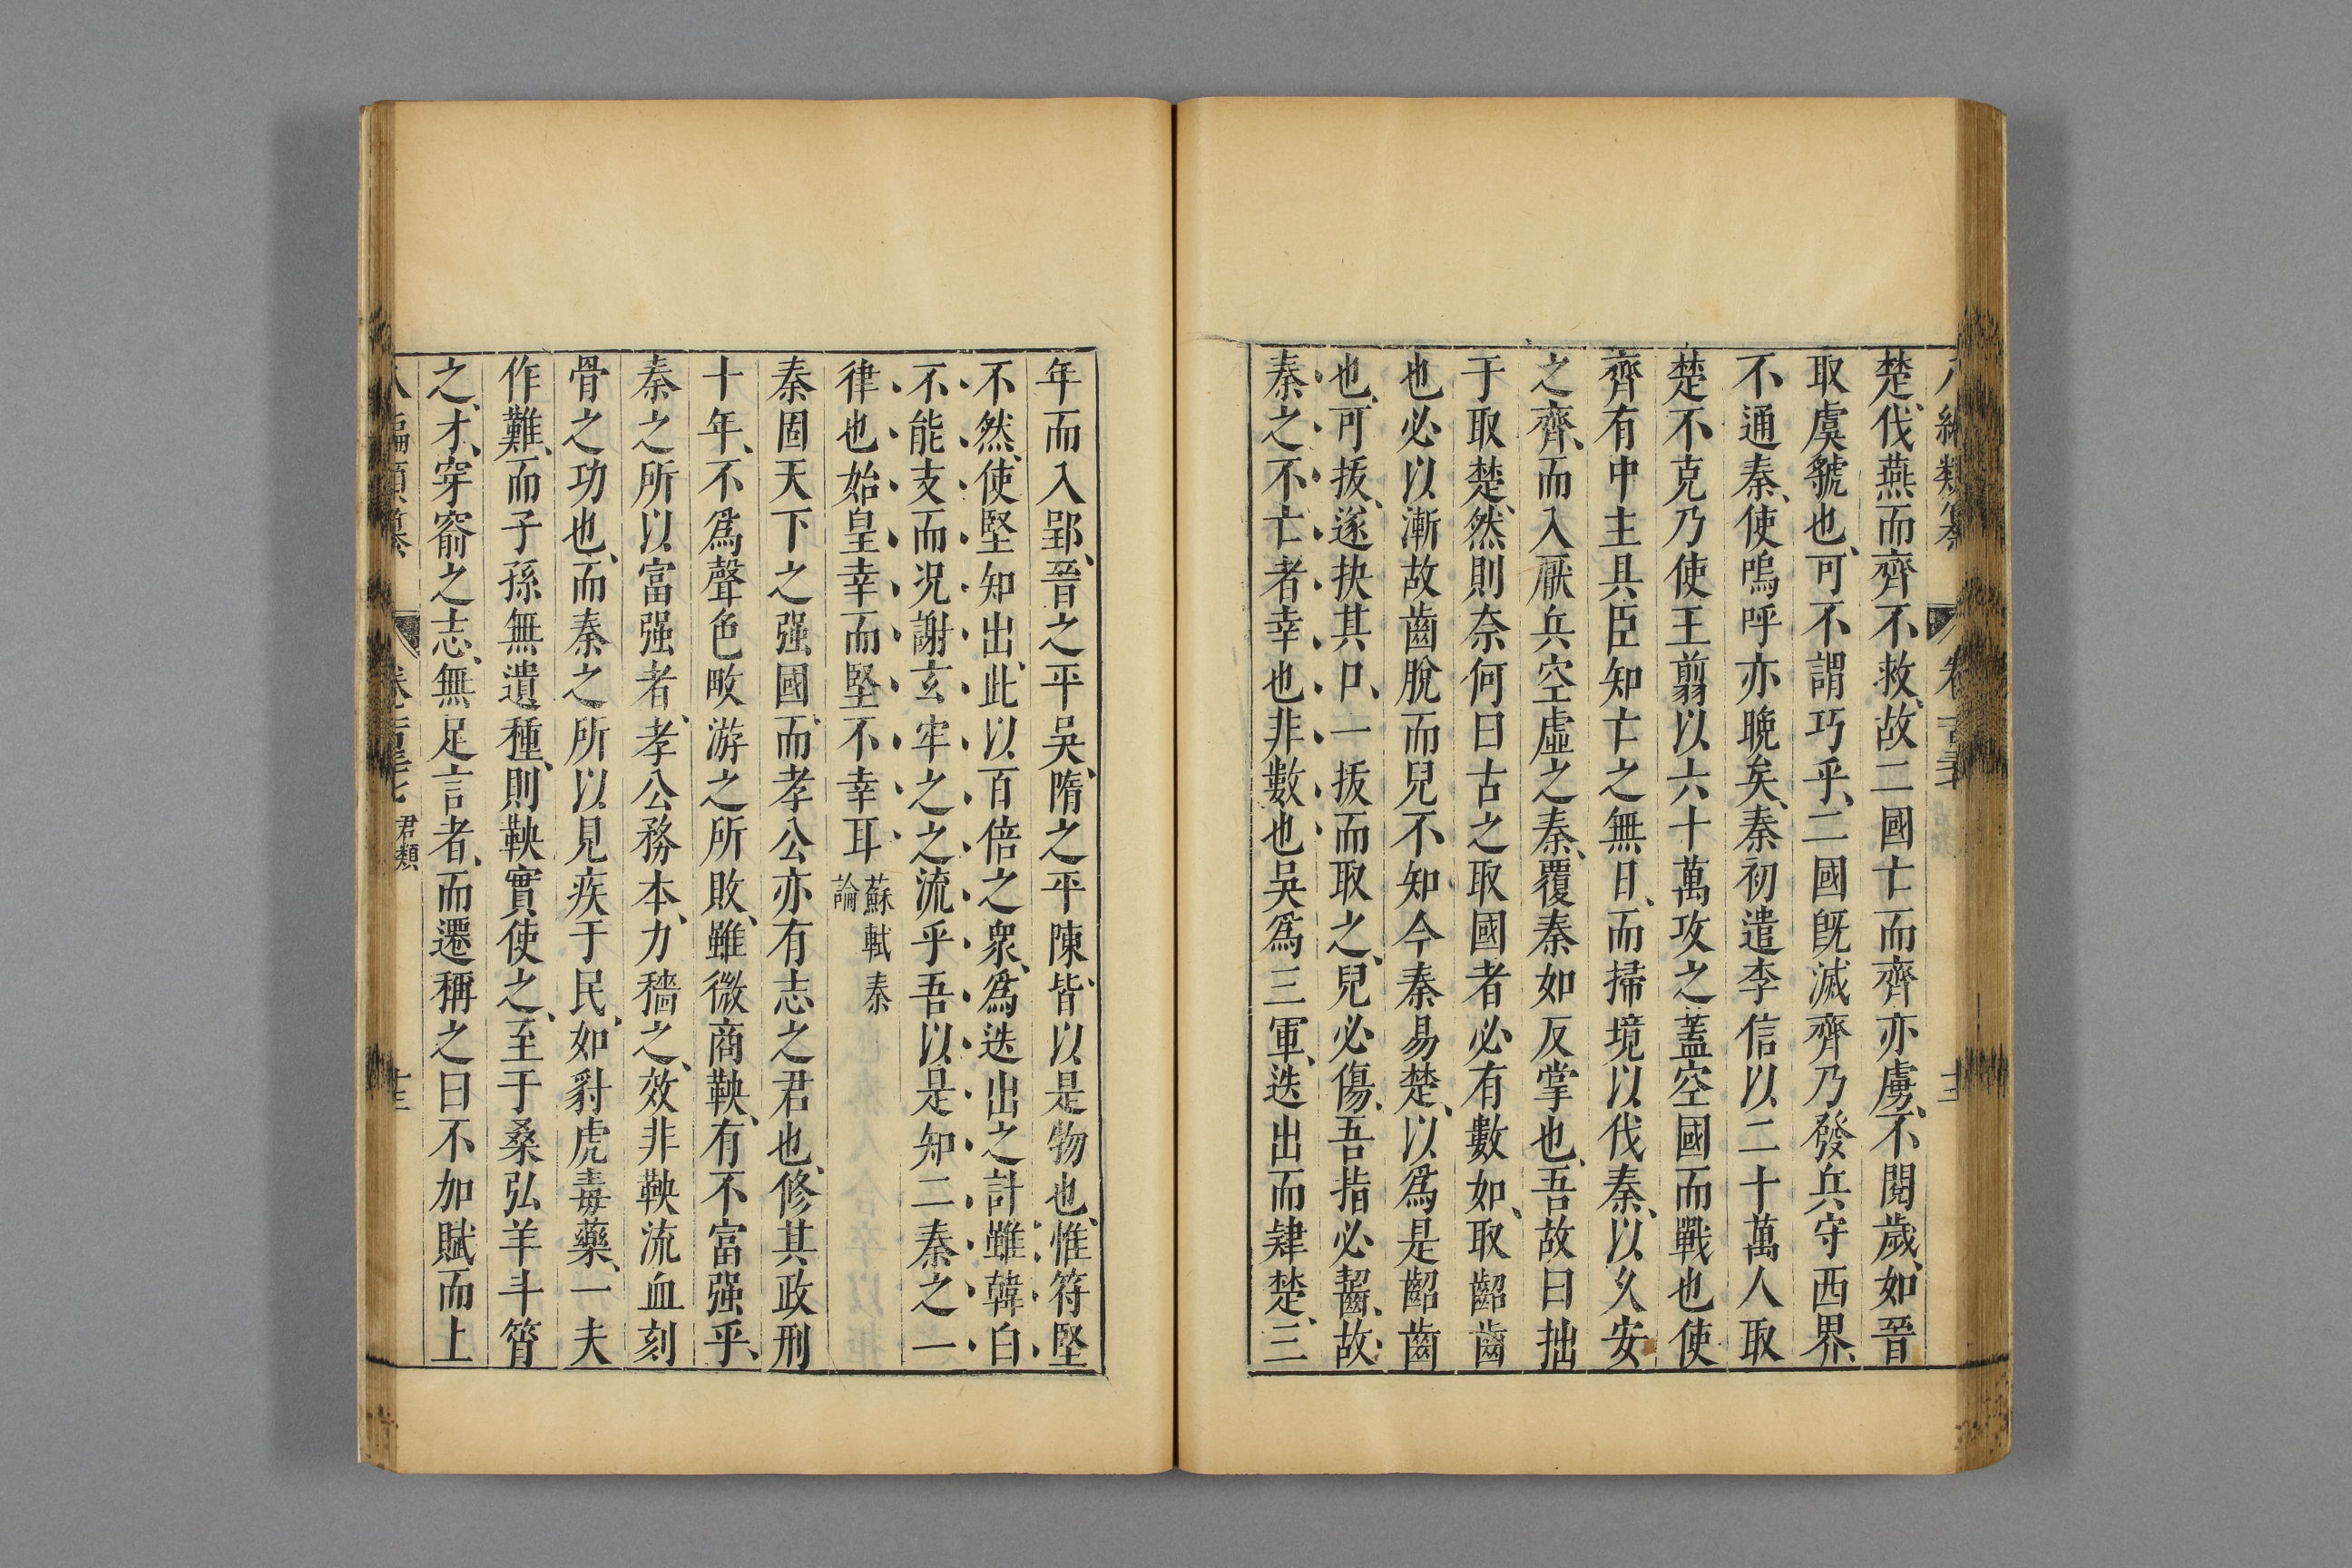 楚伐燕而齊不救故二國亡而齊亦虜不閱歲如晉
取虞虢也可不謂巧乎二國旣滅齊乃發兵守西界
不通秦使嗚呼亦晚矣秦初遣李信以二十萬人取
楚不克乃使王翦以六十萬攻之蓋空國而戰也使
齊有中主具臣知亡之無日而掃境以伐秦以久安
之齊而入厭兵空虛之秦覆秦如反掌也吾故曰拙
于取楚然則奈何曰古之取國者必有數如取齠齒
也必以漸故齒脫而兒不知今秦易楚以爲是齠齒
也可拔遂抉其口一拔而取之兒必傷吾指必齧故
秦之不亡者幸也非數也吳爲三軍迭出而肄楚三
年而入郢晉之平吳隋之平陳皆以是物也惟符堅
不然使堅知出此以百倍之衆爲迭出之計雖韓白
不能支而况謝玄牢之之流乎吾以是知二秦之一
律也始皇幸而堅不幸耳蘇軾秦
論
秦固天下之强國而孝公亦有志之君也修其政刑
十年不爲聲色畋游之所敗雖微商鞅有不富强乎
秦之所以富强者孝公務本力穡之效非鞅流血刻
骨之功也而秦之所以見疾于民如豺虎毒藥一夫
作難而子孫無遺種則鞅實使之至于桑弘羊斗筲
之才穿窬之志無足言者而遷稱之曰不加賦而上
君類